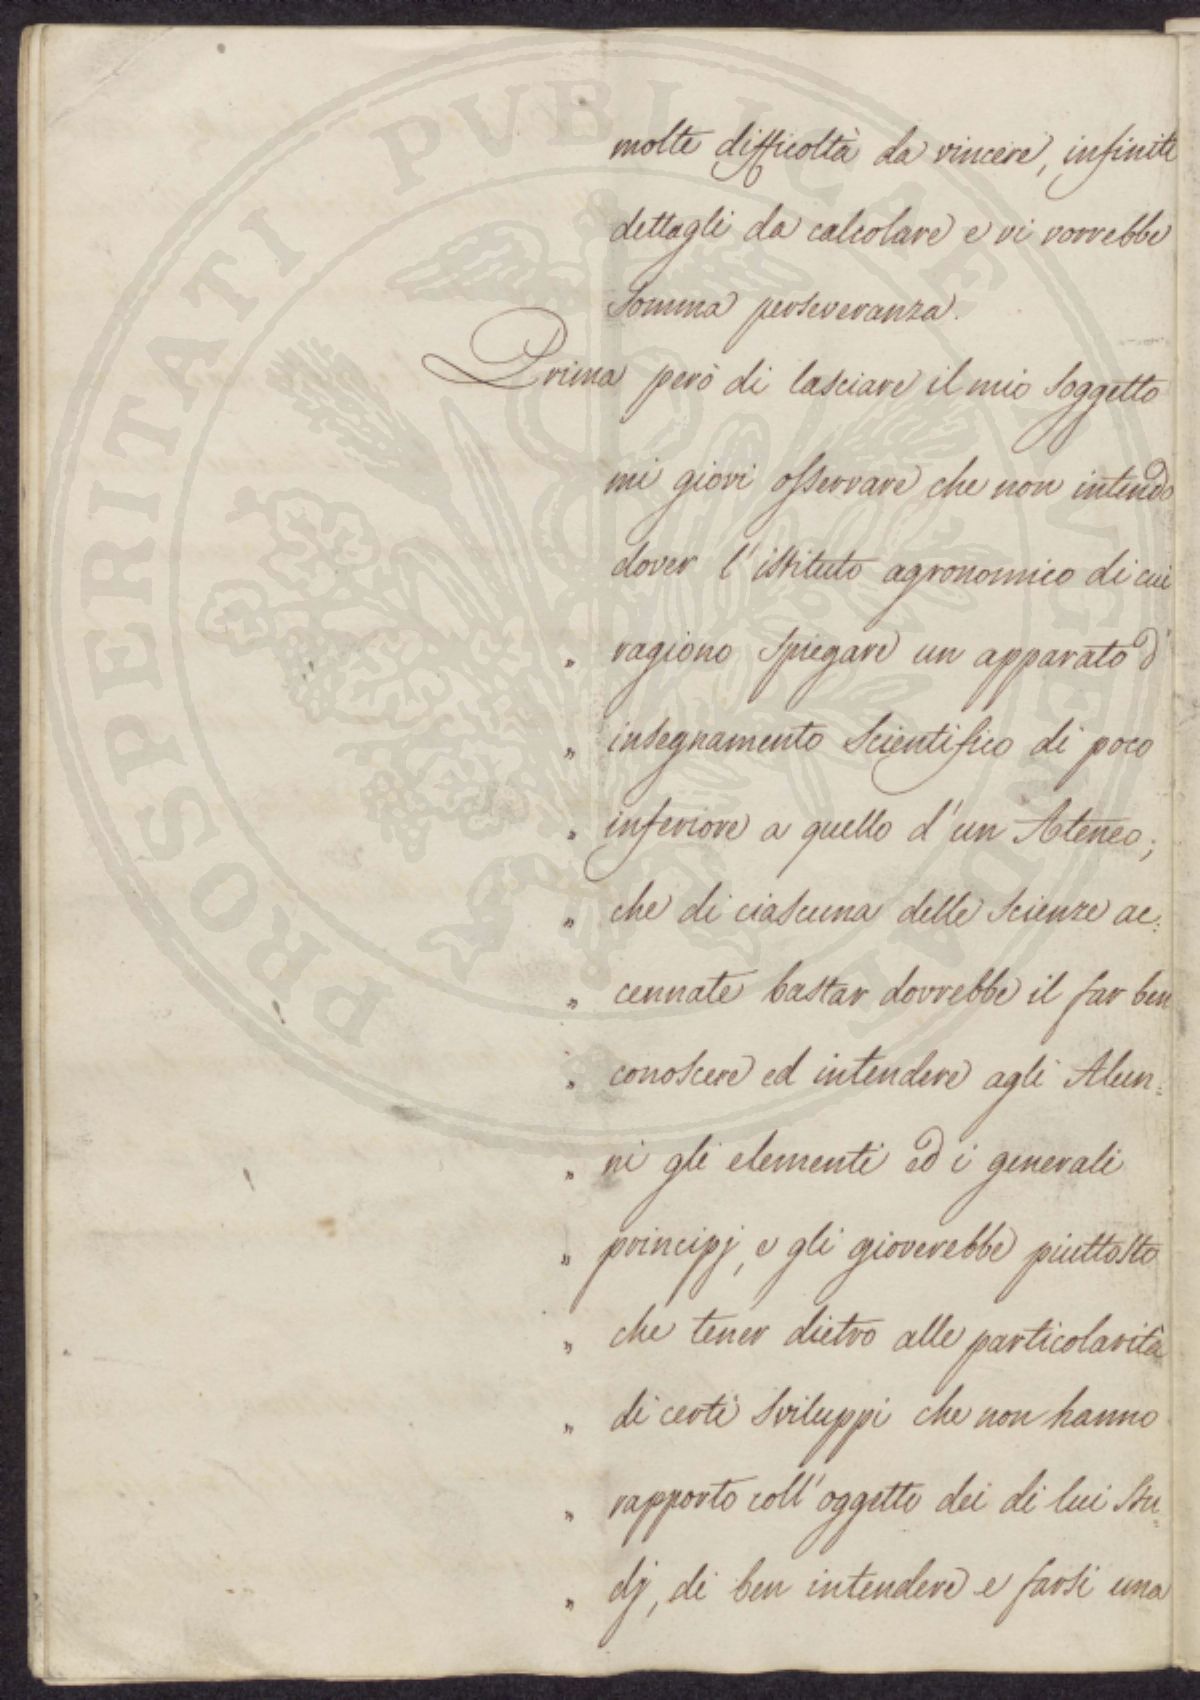 molte difficoltà da vincere, infiniti
dettagli da calcolare e vi vorrebbe
somma perseveranza.
Prima però di lasciare il mio soggetto
mi giovi osservare che non intendo
dover l'istituto agronomico di cui
" ragiono spiegare un apparato d'
" insegnamento scientifico di poco
" inferiore a quello d'un Ateneo;
" che di ciascuna delle scienze ac:
" cennate bastar dovrebbe il far ben
" conoscere ed intendere agli Alun:
" ni gli elementi ed i generali
" principj, e gli gioverebbe piuttosto
" che tener dietro alle particolarità
" di certi sviluppi che non hanno
" rapporto coll'oggetto dei di lui stu:
" dj, di ben intendere e farsi una
PROSPERITATI PUBLICAE AUGENDAE